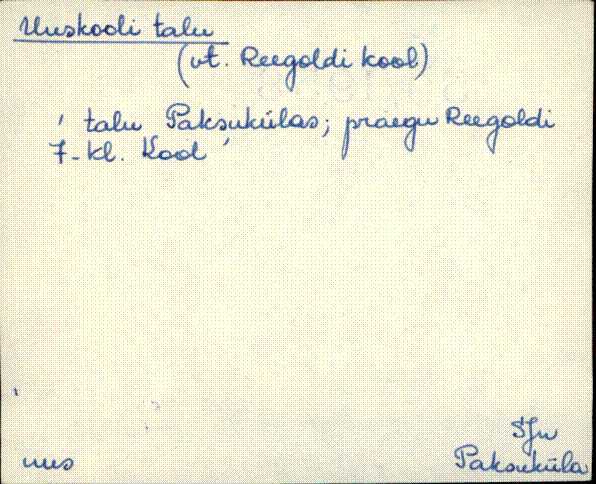 Uuskooli talu
(vt. Reegoldi kool)
' talu Paksukülas; praegu Reegoldi
7-kl. kool '
SJn
uus Paksuküla